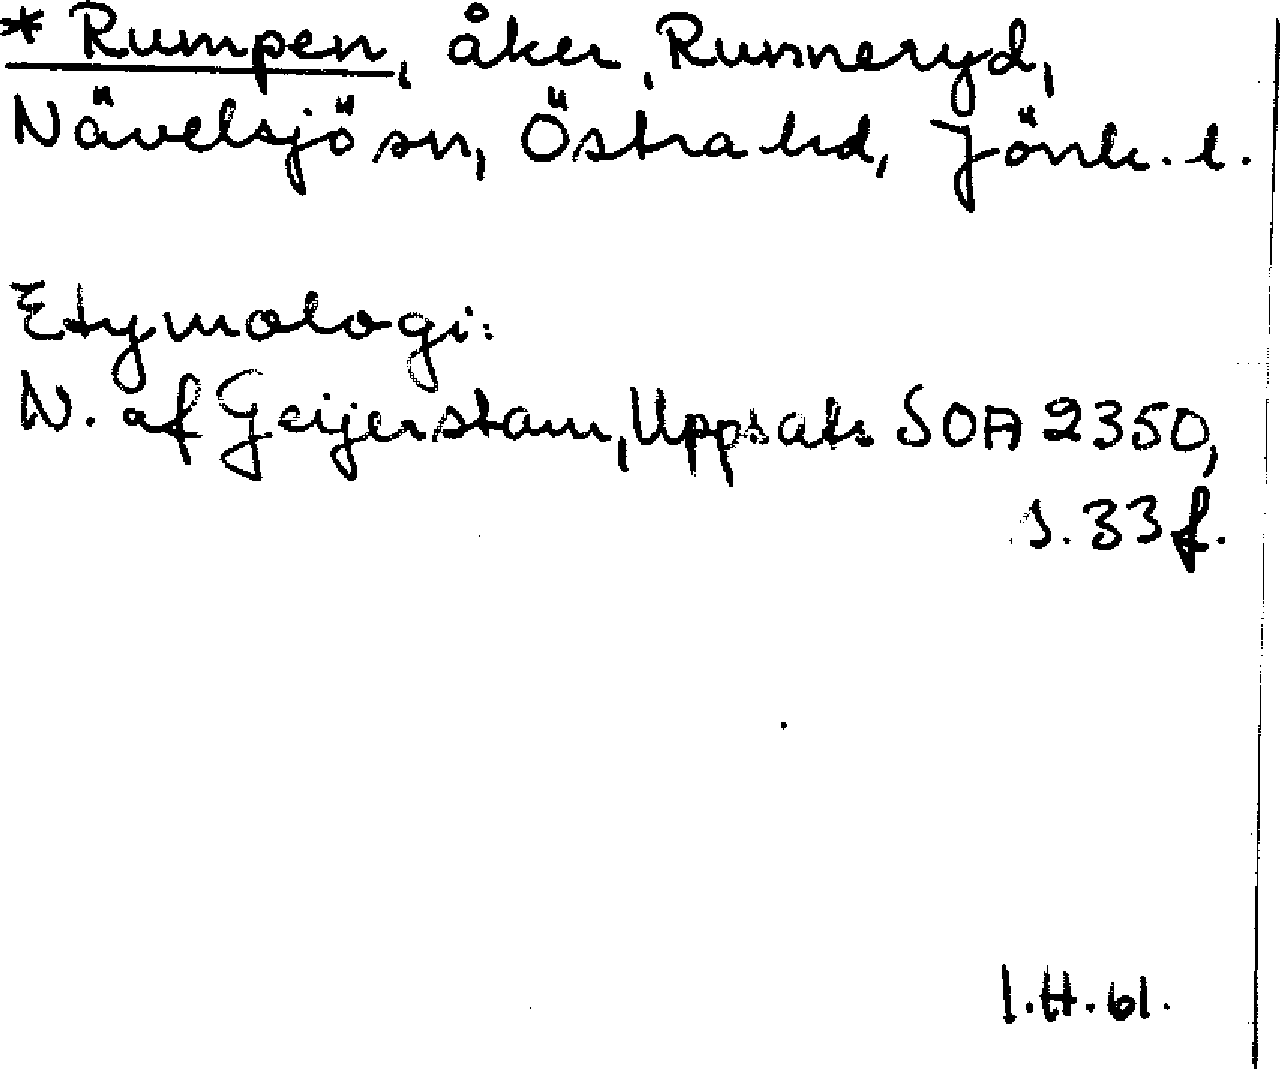 * Rumpen, åker, Runneryd,
Nävelsjö sn, Östra hd, Jönk. l.
Etymologi:
N. af Geijerstam, Uppsats SOA 2350,
s. 33 f.
I.H. 61.